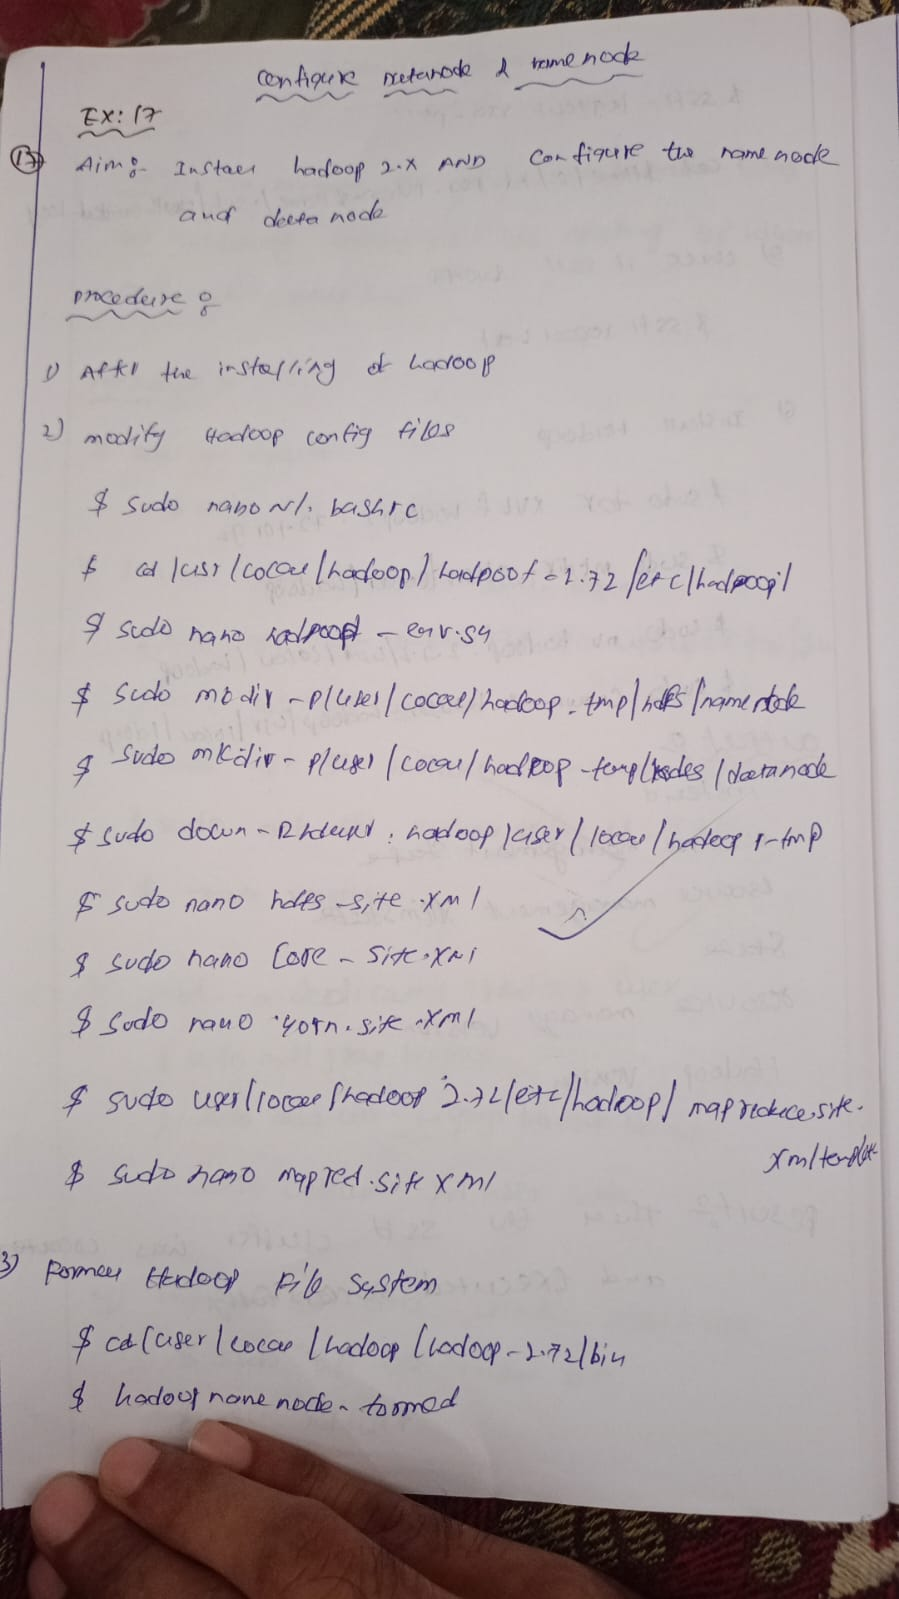 Configure datanode & name node
EX: 17
17 Aim:- Install hadoop 2.x AND Configure the name node
and data node
procedure :
1) After the installing of hadoop
2) modify Hadoop config files
$ sudo nano ~/. bashrc
$ cd /usr/local/hadoop/ hadoop - 2.72 /etc/hadoop/
$ sudo nano hadoop - env.sh
$ sudo modir -p/user/local/hadoop - tmp/hdfs/name node
$ sudo mkdir - p/user/local/hadoop - temp/ /datanode
$ sudo - R : hadoop /user/local/hadoop - tmp
$ sudo nano hdfs -site .xml
$ sudo nano Core - site.xml
$ sudo nano yarn. site .xml
$ sudo user/local/hadoop 2.72/etc/hadoop/ mapreduce.site.
xml template
$ sudo nano mapred.site xml
3) Format Hadoop File System
$ cd /user/local/hadoop/hadoop-2.72/bin
$ hadoop name node -